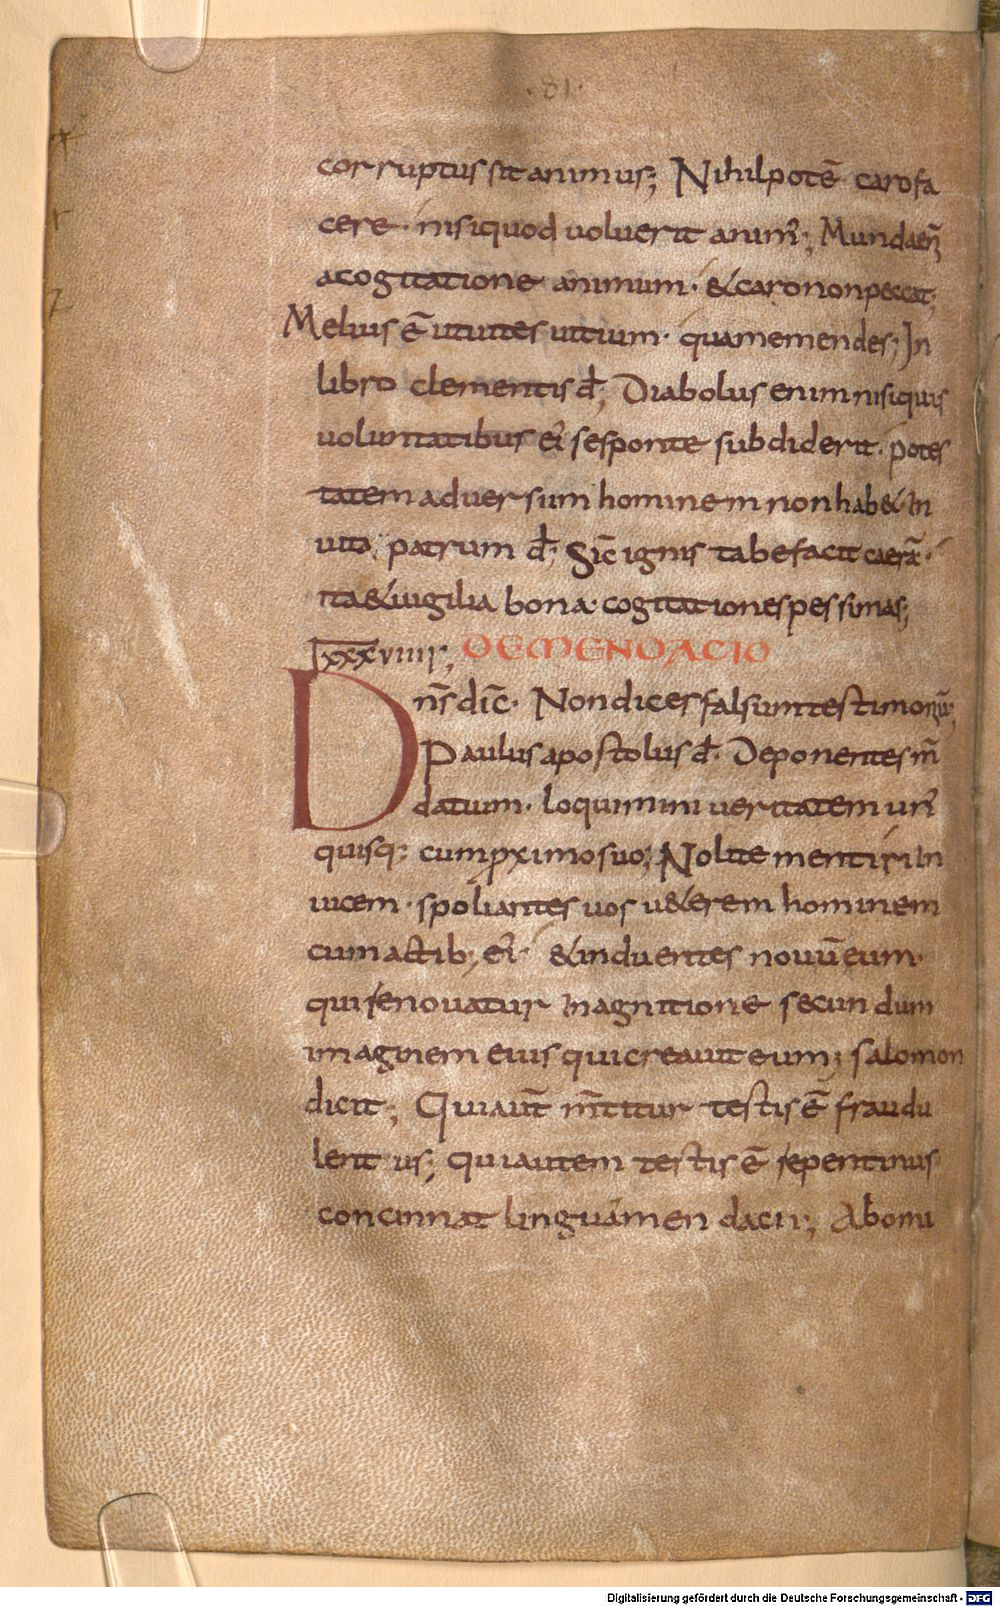 ·81·
corruptus sit animus; Nihil potē caro fa
cere· nisi quod uoluerit anim᾽; Munda enī
a cogitatione animum· & caro non peccat;
Melius ē ut uites uitium· quam emendes; In
libro clementis đ; Diabolus enim nisi quis
uoluntatibus ei᾽ se sponte subdiderit· potes
tatem aduersum hominem non hab& In
uita patrum đ; Sic̄ ignis tabefacit caerā·
ita & uigilia bona· cogitationes pessimas;
lxxxviiii; DE MENDACIO
Dn̄s dic̄· Non dices falsum testimoniū;
Paulus apostolus đ· Deponentes m̄
datium· loquimini ueritatem un᾽
quisq; cum proximo suo; Nolite mentiri In
uicem· spoliantes uos u&erem hominem
cum actib; ei᾽· & induentes nouū eum·
qui renouatur In agnitione secundum
imaginem eius qui creauit eum; salomon
dicit; Qui aut̄ m̄titur testis ē fraudu
lentus; qui autem testis ē repentinus
concinnat linguā mendacii; Abomi
Digitalisierung gefördert durch die Deutsche Forschungsgemeinschaft - DFG